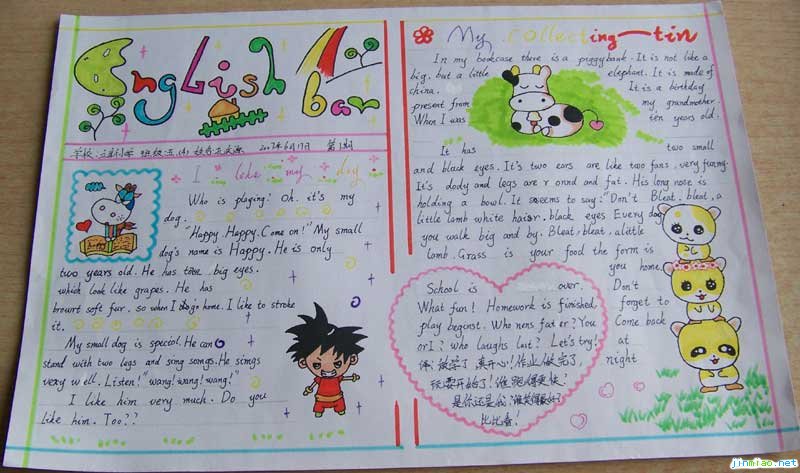 English bar
2017年6月17日 第1期
I like my dog
Who is playing? Oh. it's my
dog.
"Happy. Happy. Come on!" My small
dog's name is Happy. He is only
two years old. He has two big eyes.
which look like grapes. He has
brourt soft fur. so when I go home. I like to stroke
it.
My small dog is special. He can
stand with two legs and sing songs. He sings
very well. Listen! "wang! wang! wang!"
I like him very much. Do you
like him. Too??
happy
My collecting-tin
In my bookcase there is a piggybank. It is not like a
big. but a little elephant. It is made of
china. It is a birthday
present from my grandmother.
When I was ten years old.
It has two small
and black eyes. It's two ears are like two fans, very funny.
It's dody and legs are r onnd and fat. His long nose is
holding a bowl. It seems to say: "Don't Bleat, bleat, a
little lamb white hair. black eyes Every day
you walk big and by. Bleat, bleat, a little
lamb. Grass is your food the form is
you home.
Don't
forget to
Come back
at
night
School is over.
What fun! Homework is finished,
play beginst. Who nens fat er? You
or I? Who laughs last? Let's try!
放学了 真开心! 作业做完了,
玩耍开始了! 谁跑得更快?
是你还是我? 谁笑得最好?
比比看.
jinmiao.net